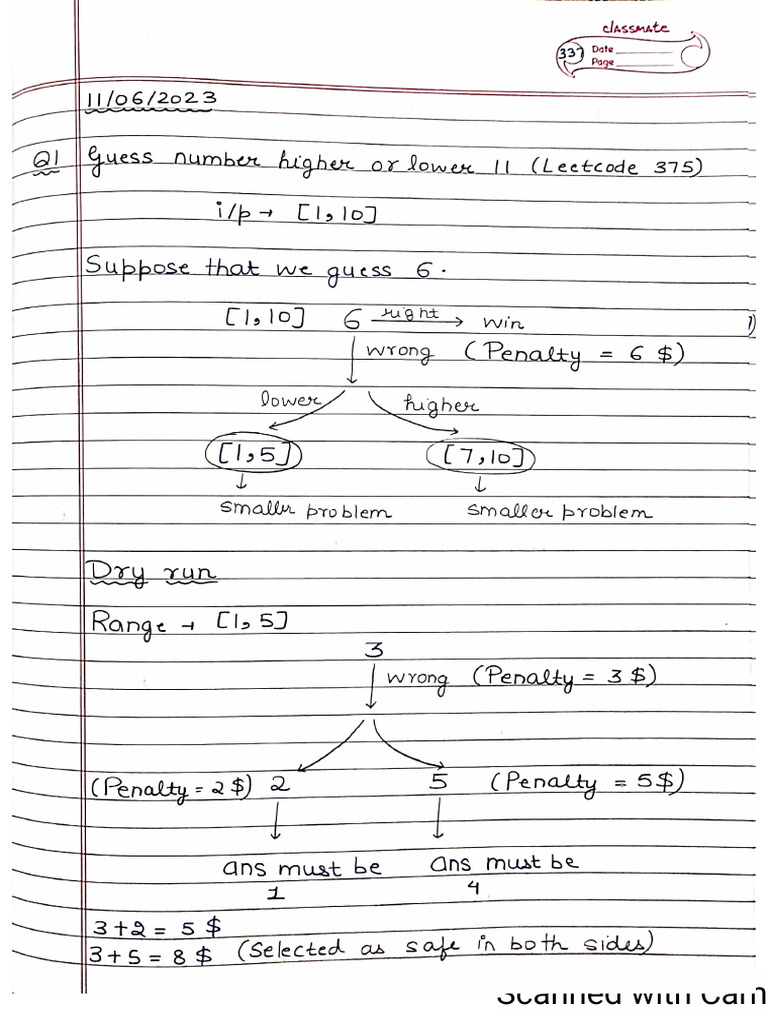 classmate
337 Date
Page
11/06/2023
Q1 Guess number higher or lower 11 (Leetcode 375)
i/p → [1,10]
Suppose that we guess 6.
[1,10] 6 right → win
1)
wrong (Penalty = 6 $)
lower higher
[1,5] [7,10]
smaller problem smaller problem
Dry run
Range → [1,5]
3
wrong (Penalty = 3 $)
(Penalty = 2 $) 2 5 (Penalty = 5 $)
ans must be ans must be
1 4
3+2 = 5 $
3+5 = 8 $ (Selected as safe in both sides)
Scanned with Cam